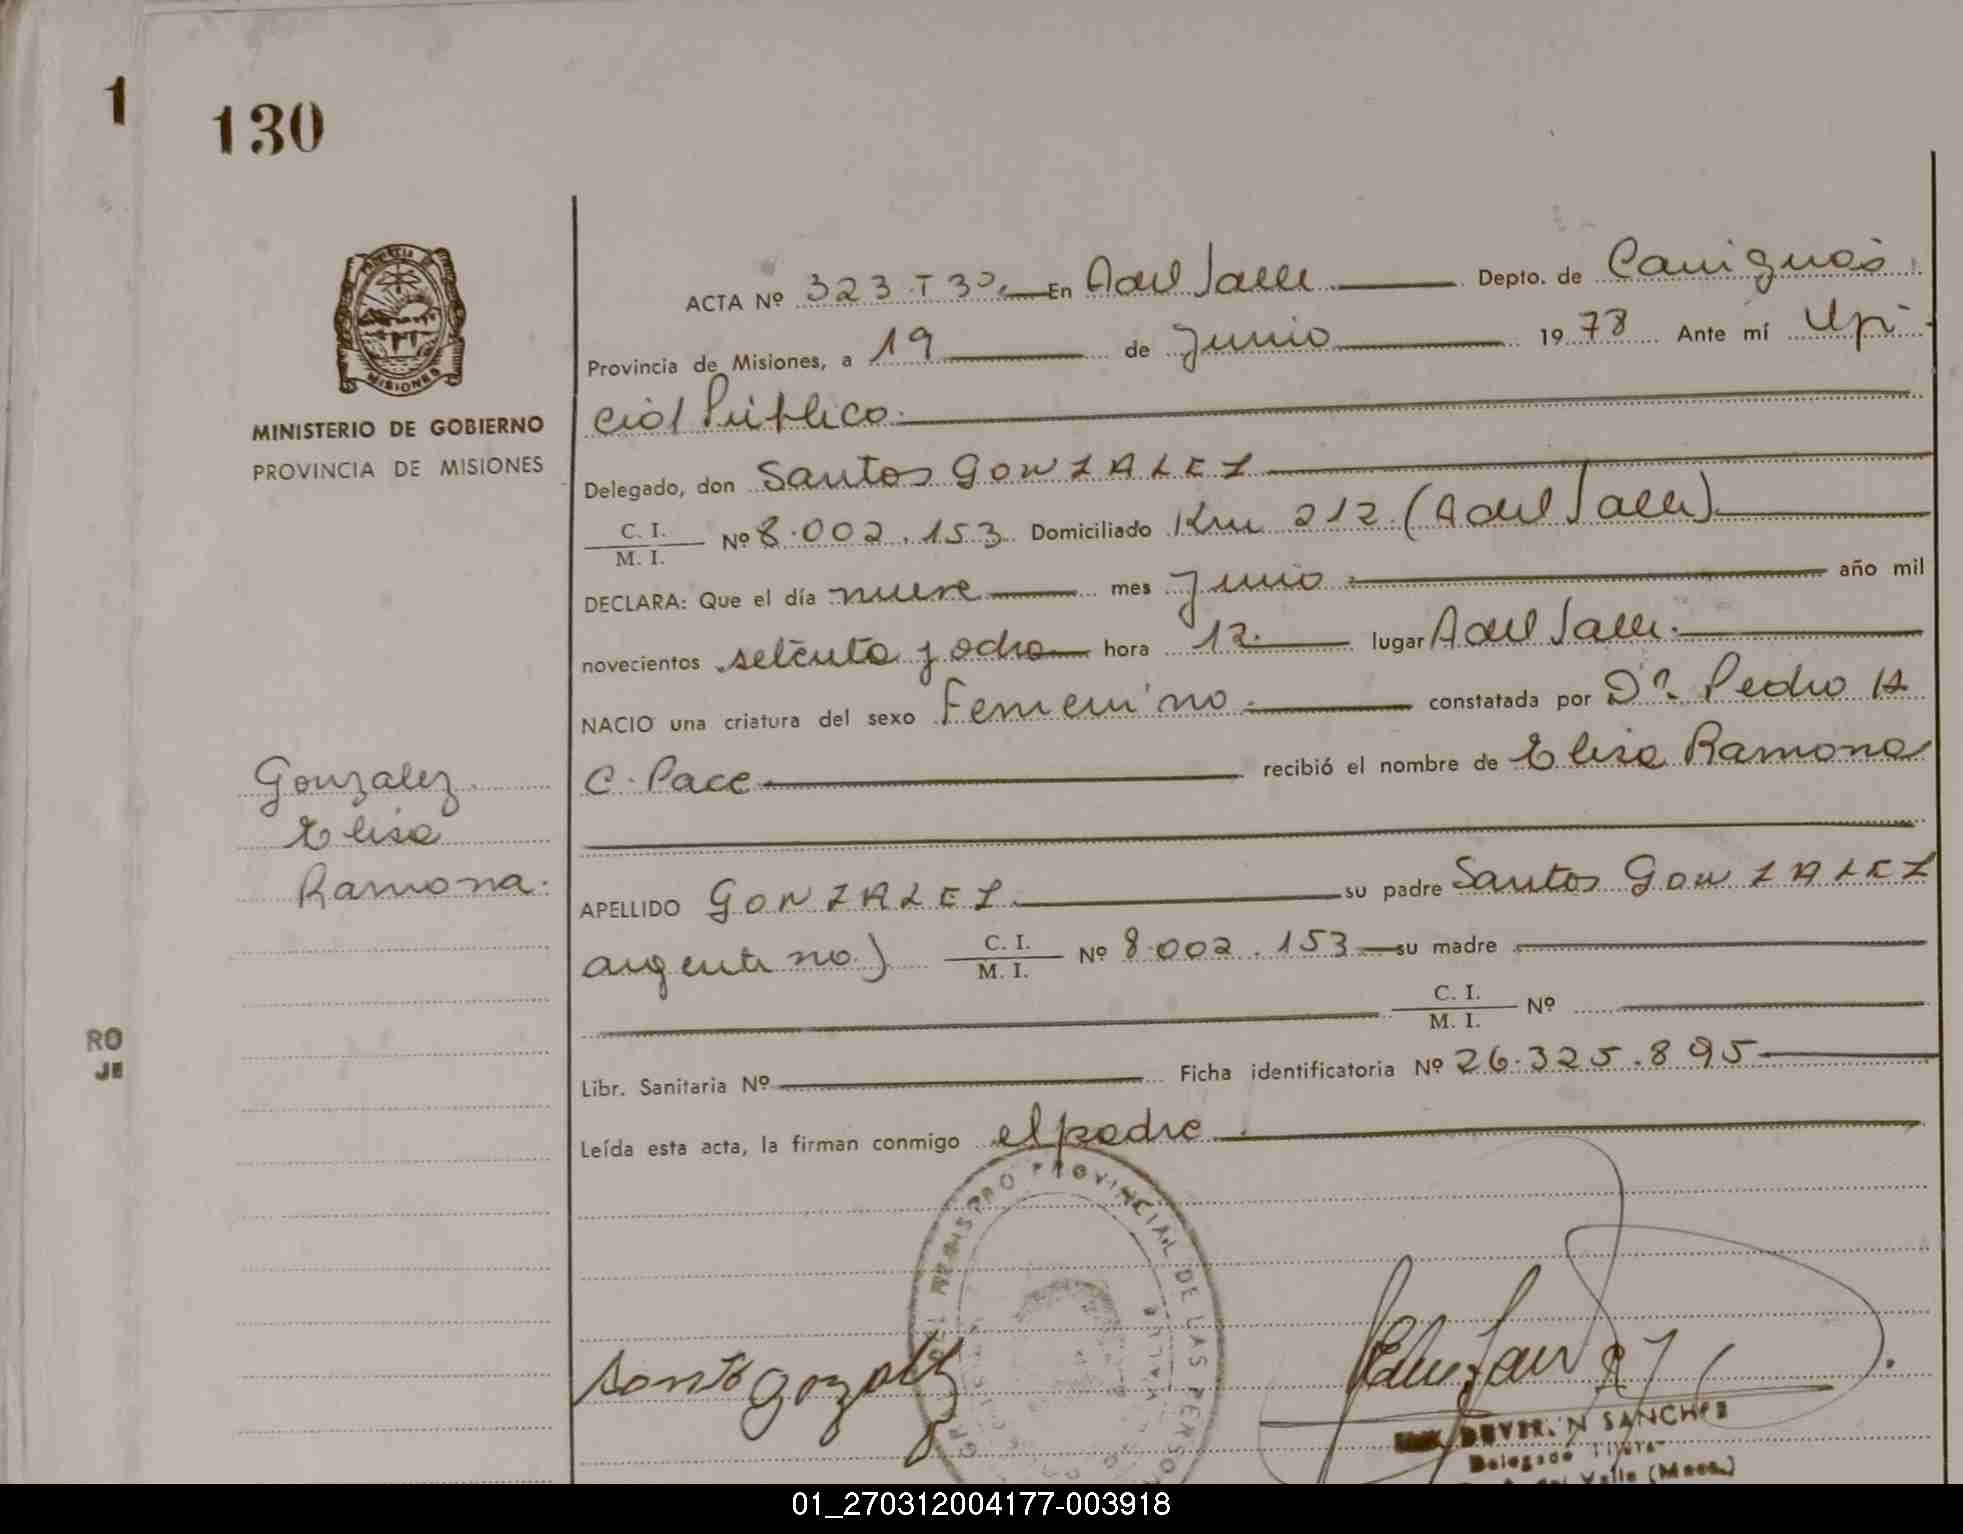 1
130
PROVINCIA DE
MISIONES
MINISTERIO DE GOBIERNO
PROVINCIA DE MISIONES
ACTA Nº 323.T3º. En A del Valle Depto. de Cainguás
Provincia de Misiones, a 19 de Junio 1978 Ante mí Ofi
cial Público.
Delegado, don Santos GONZALEZ
C. I.
M. I.
Nº 8.002.153 Domiciliado Km 212 (A del Valle)
DECLARA: Que el día nueve mes Junio año mil
novecientos setenta y ocho hora 12. lugar A del Valle.
NACIO una criatura del sexo Femenino. constatada por Dr. Pedro H
C. Pace recibió el nombre de Elisa Ramona
Gonzalez
Elisa
Ramona.
APELLIDO GONZALEZ su padre Santos GONZALEZ
argentino) C. I.
M. I.
Nº 8.002.153 su madre
C. I.
M. I.
Nº
RO
JE
Libr. Sanitaria Nº Ficha identificatoria Nº 26.325.895
Leída esta acta, la firman conmigo el padre.
REGISTRO PROVINCIAL DE LAS PERSO
SANCHEZ
Delegado Titular
del Valle (Mnes.)
01_270312004177-003918